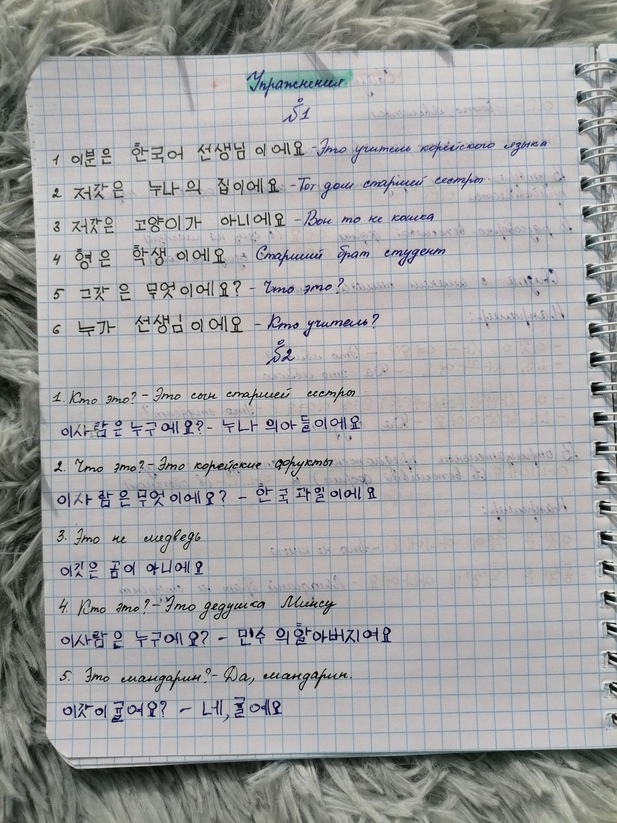 Упражнения
№1
1 이분은 한국어 선생님이에요 - Это учитель корейского языка
2 저갓은 누나의 집이에요 - Тот дом старшей сестры
3 저갓은 고양이가 아니에요 - Вон то не кошка
4 형은 학생이에요 - Старший брат студент
5 그갓은 무엇이에요? - Что это?
6 누가 선생님이에요 - Кто учитель?
№2
1. Кто это? - Это сын старшей сестры
이사람은 누구에요? - 누나의아들이에요
2. Что это? - Это корейские фрукты
이사람은무엇이에요? - 한국과일이에요
3. Это не медведь
이깃은 곰이 아니에요
4. Кто это? - Это дедушка Минсу
이사람은 누구에요? - 민수의할아버지여요
5. Это мандарин? - Да, мандарин.
이갓이귤여요? - 네, 귤에요